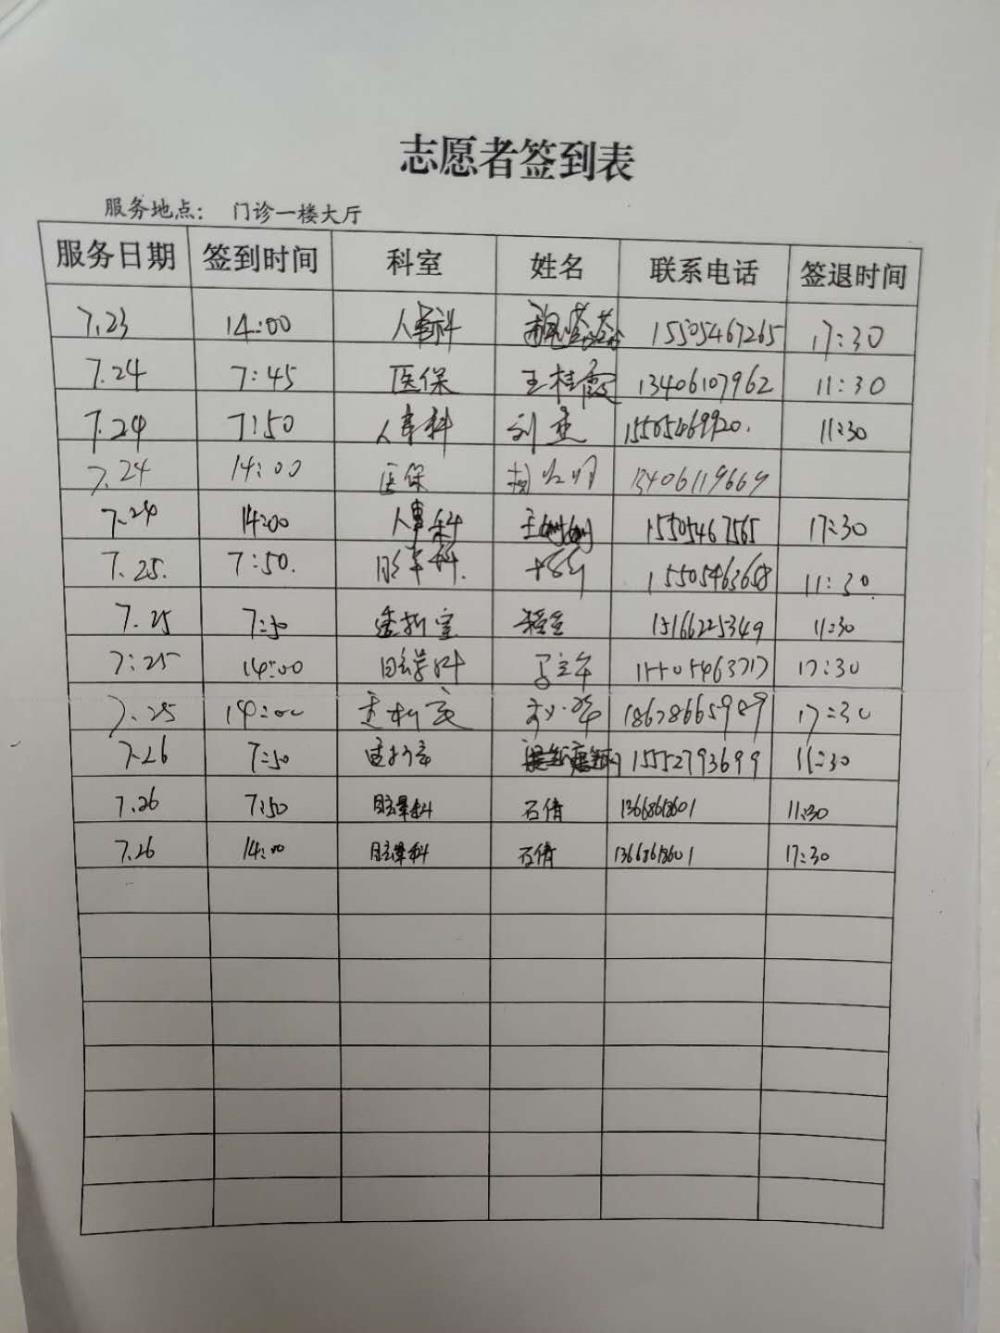 志愿者签到表
服务地点： 门诊一楼大厅
服务日期 签到时间 科室 姓名 联系电话 签退时间
7.23 14:00 人事科 15505467265 17:30
7.24 7:45 医保 王桂霞 13406107962 11:30
7.24 7:50 人事科 刘 15505469920. 11:30
7.24 14:00 医保 13406119669
7.24 14:00 人事科 王 15505467565 17:30
7.25. 7:50. 科. 11:30.
7.25 7:50 透析室 15166225349 11:30
7:25 14:00 科 15505463717 17:30
7.25 14:00 透析室 18678665989 17:30
7.26 7:50 15552793699 11:30
7.26 7:50 科 石倩 11:30
7.26 14:00 科 石倩 17:30